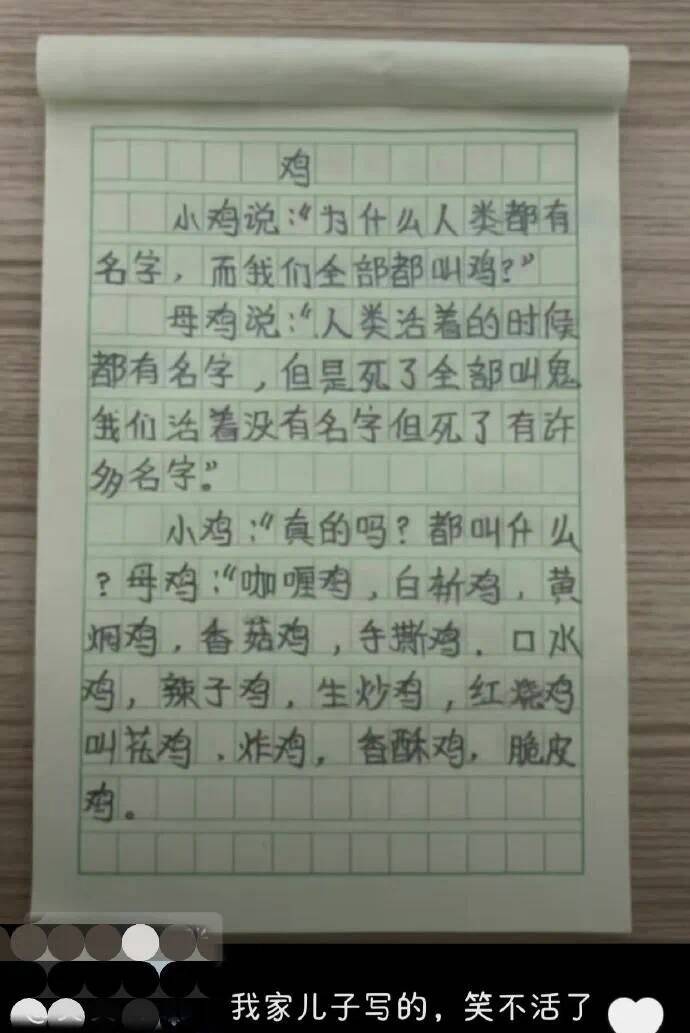 鸡
小鸡说:“为什么人类都有
名字,而我们全部都叫鸡?”
母鸡说:“人类活着的时候
都有名字,但是死了全部叫鬼
我们活着没有名字但死了有许
多名字。”
小鸡:“真的吗?都叫什么
?母鸡:“咖喱鸡,白斩鸡,黄
焖鸡,香菇鸡,手撕鸡.口水
鸡,辣子鸡,生炒鸡,红烧鸡
叫花鸡.炸鸡,香酥鸡.脆皮
鸡。
我家儿子写的,笑不活了